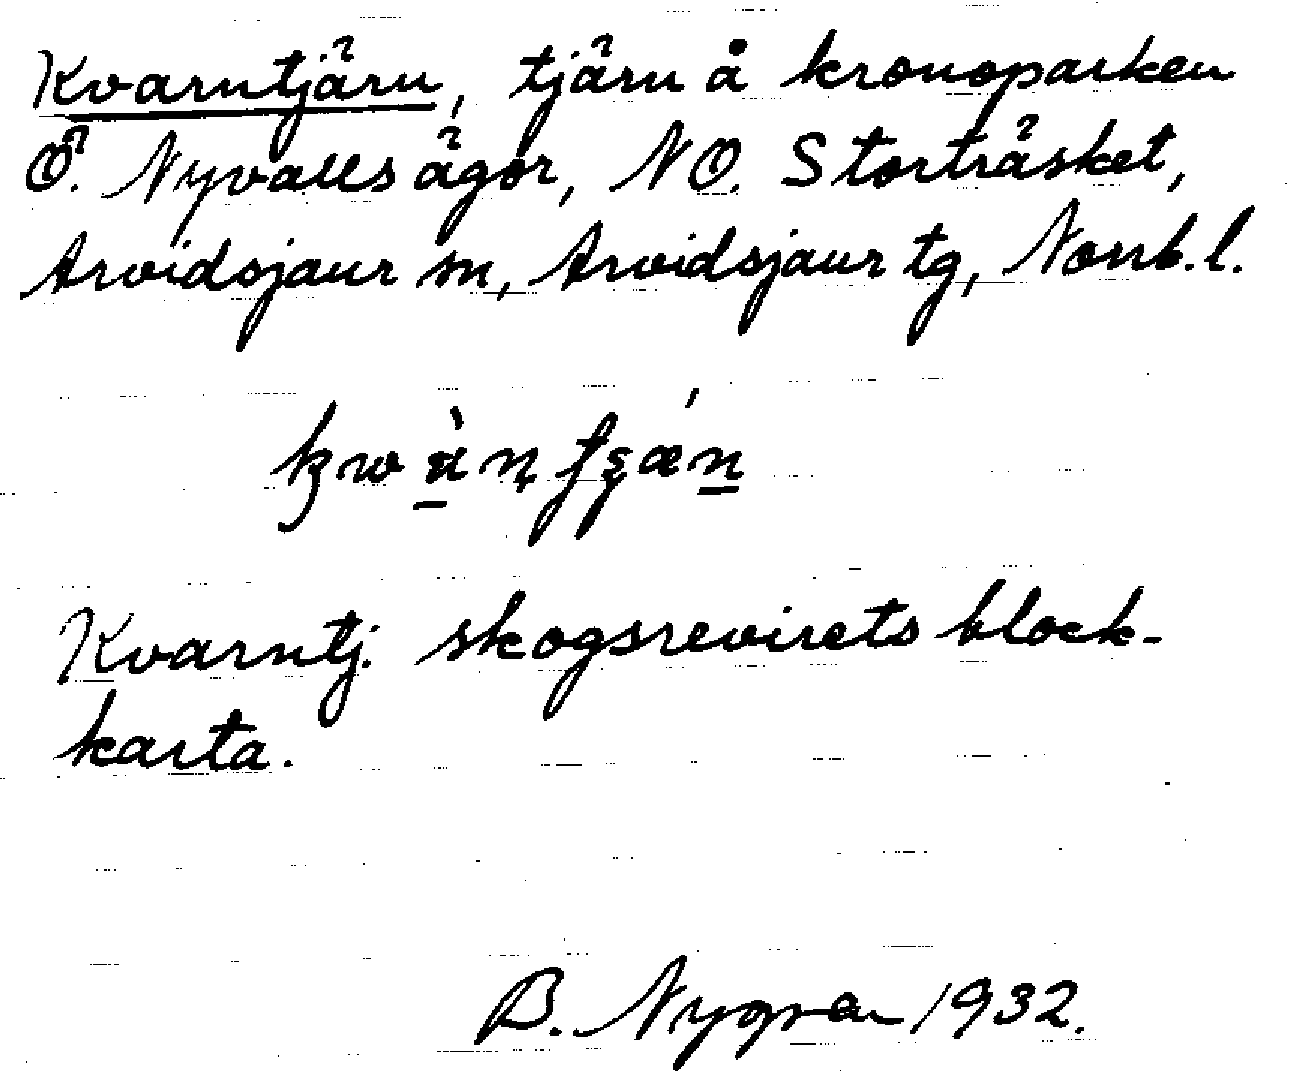 Kvarntjärn, tjärn å kronoparken
Ö. Nyvalls ägor, NO. Storträsket,
Arvidsjaur sn, Arvidsjaur tg, Norrb. l.
Kvarntj. skogsrevirets block-
karta.
B. Nygren 1932.